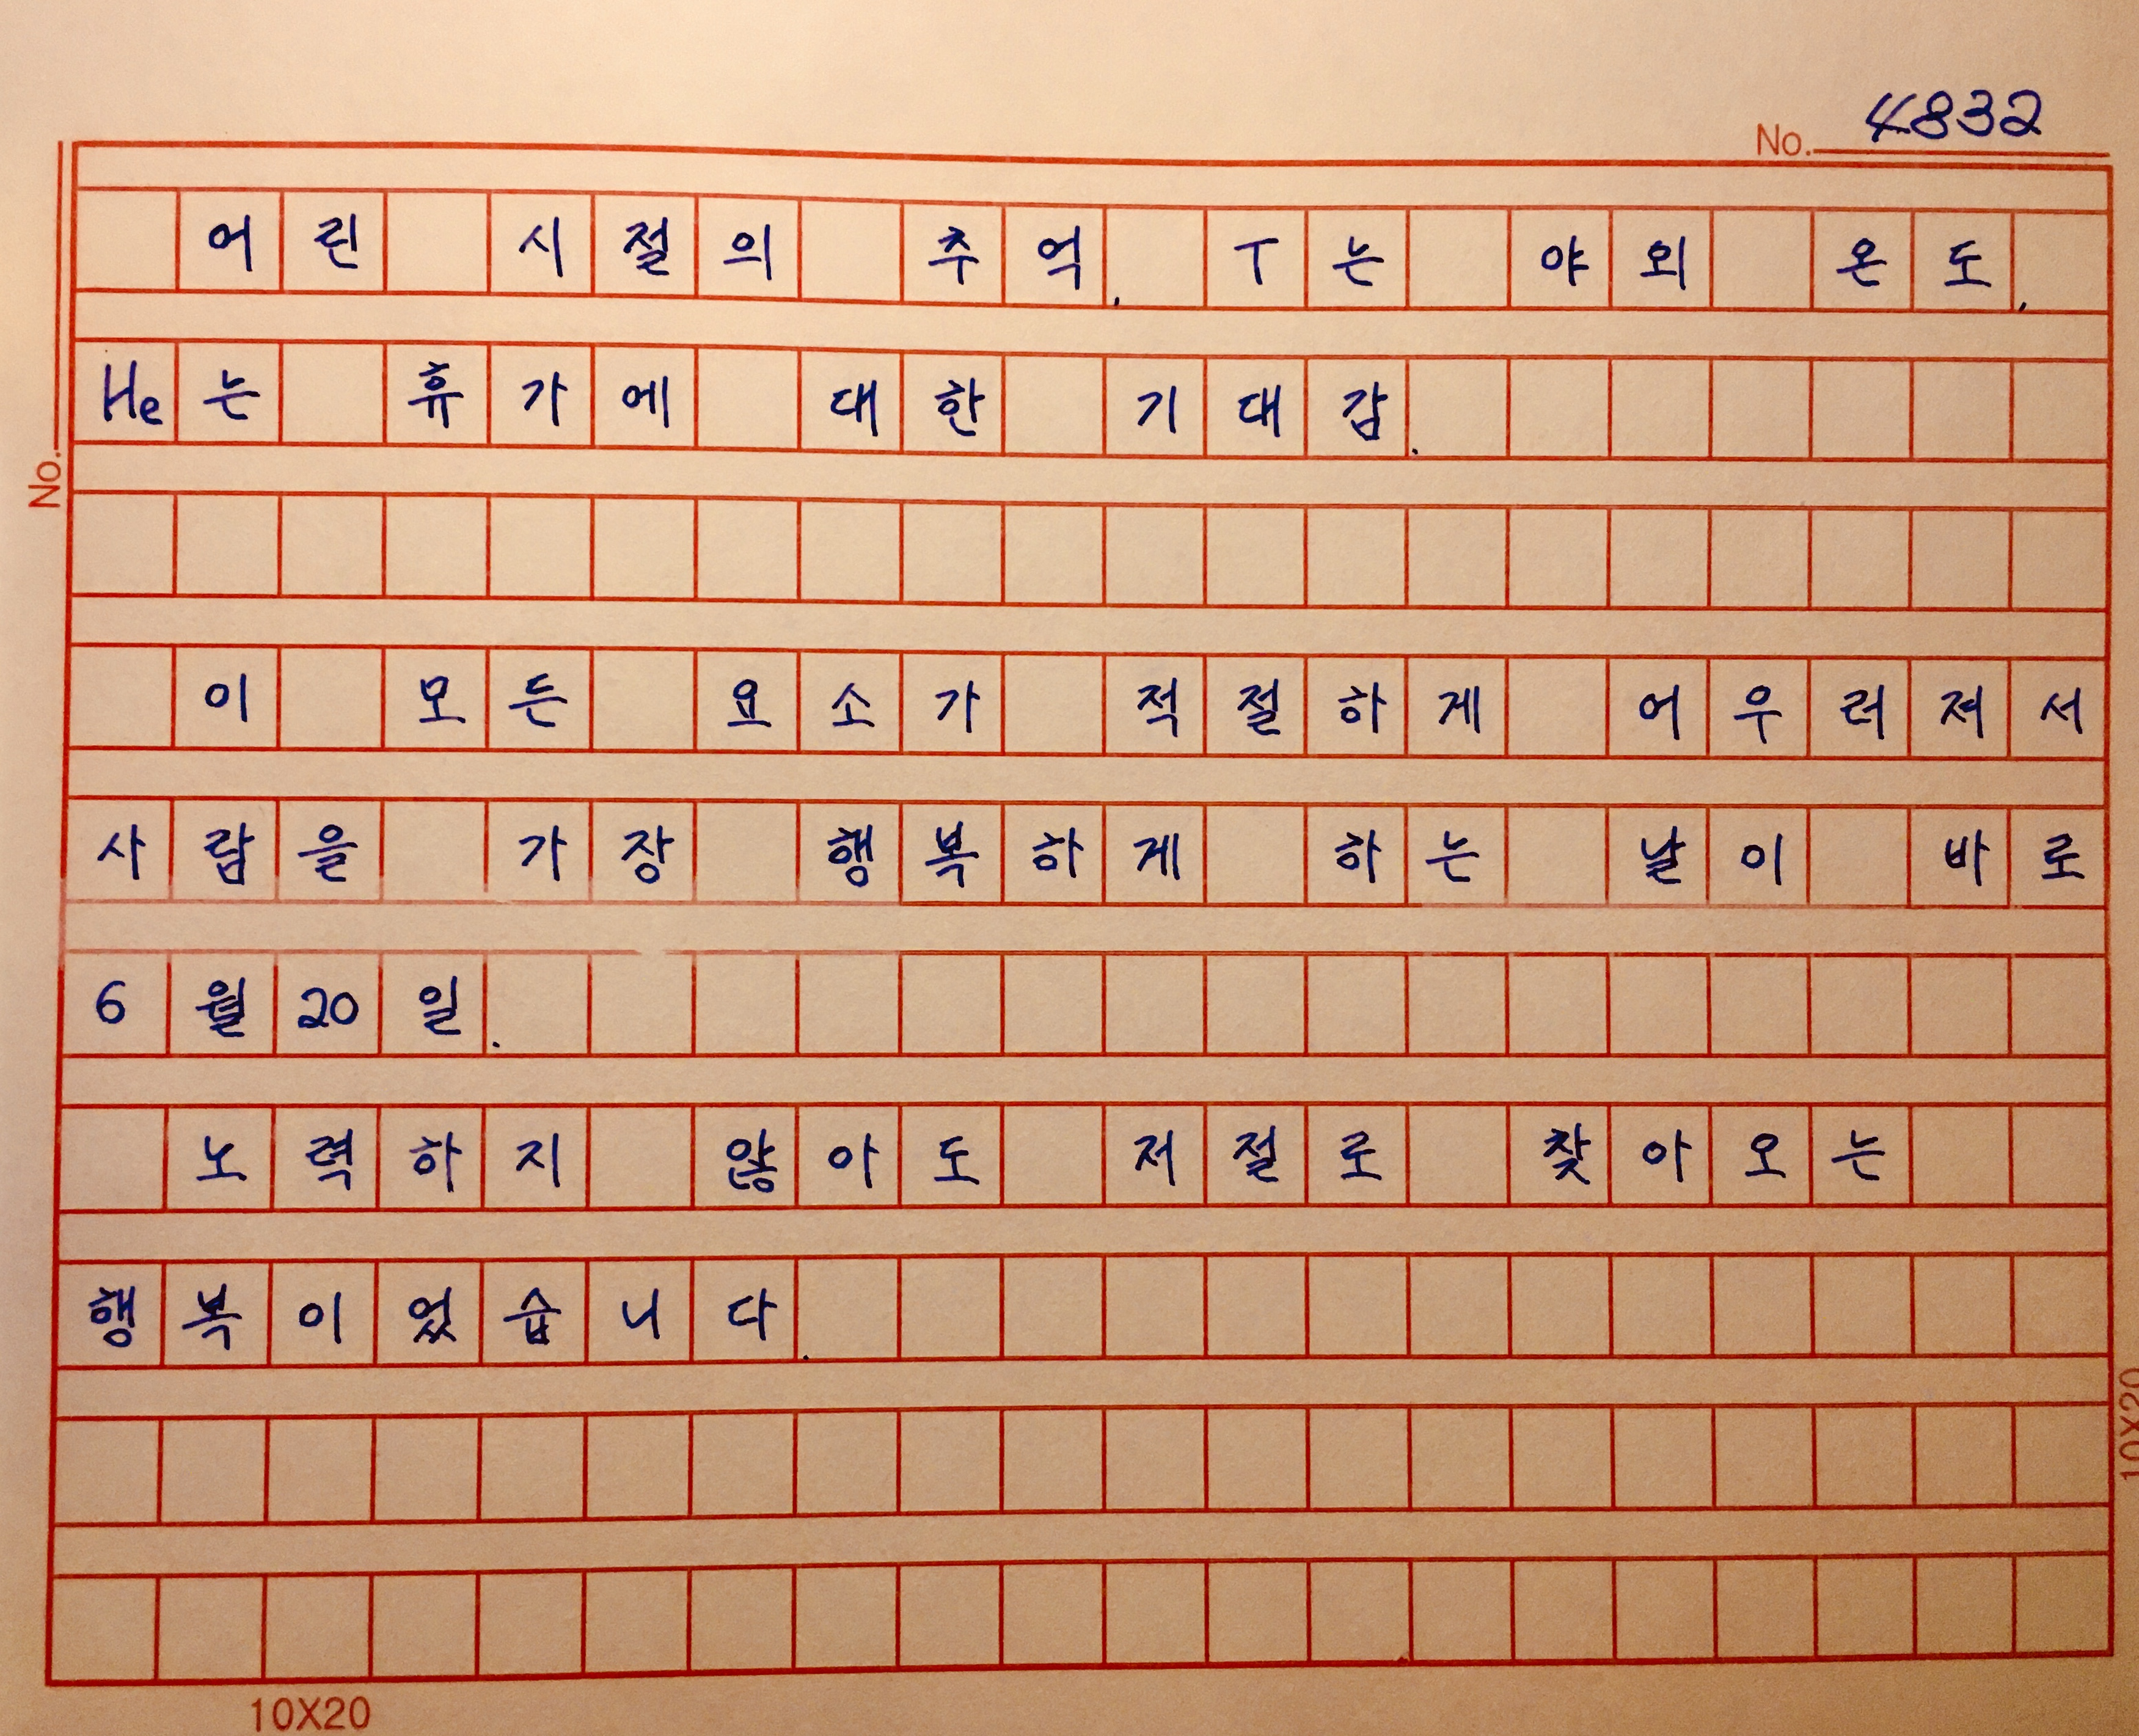 No. 4832
어린 시절의 추억. T는 야외 온도.
He는 휴가에 대한 기대감.
No.
이 모든 요소가 적절하게 어우러져서
사람을 가장 행복하게 하는 날이 바로
6월 20일.
노력하지 않아도 저절로 찾아오는
행복이었습니다.
10X20
10X20